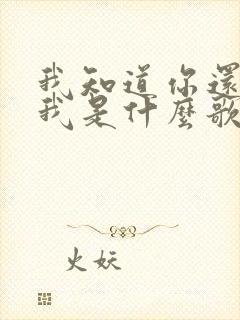 我知道你還
我是什麼歌
火妖